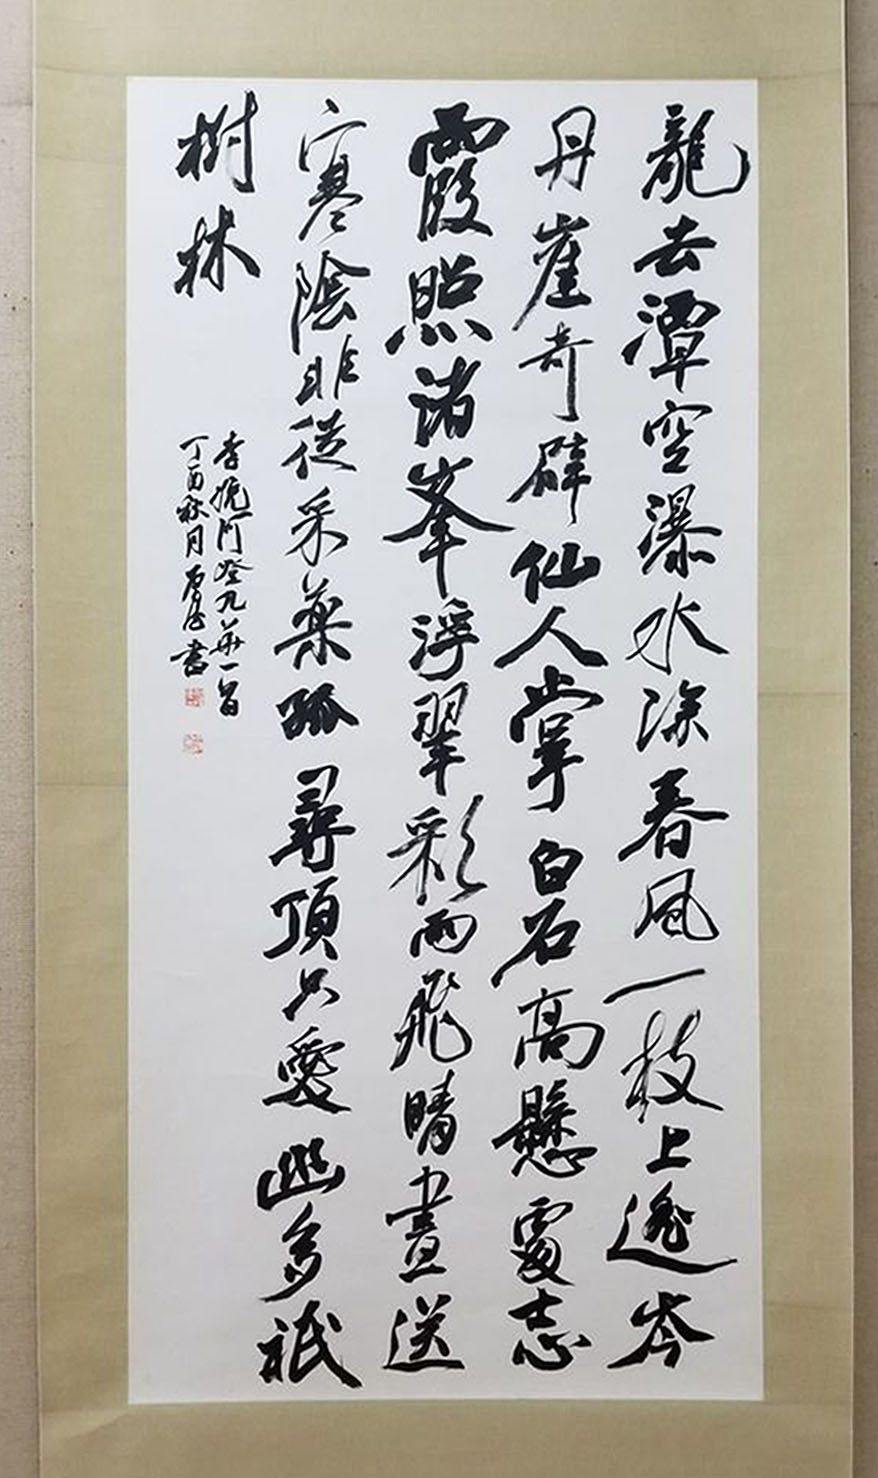 龍去潭空瀑水深春風一枝上遙岑
丹崖奇辟仙人掌白石高懸處志
霞照渚峯浮翠彩雨飛晴晝送
寒陰非從采藥孤尋頂只愛幽多祇
樹林
李婉門登九華一首
丁酉秋月 書